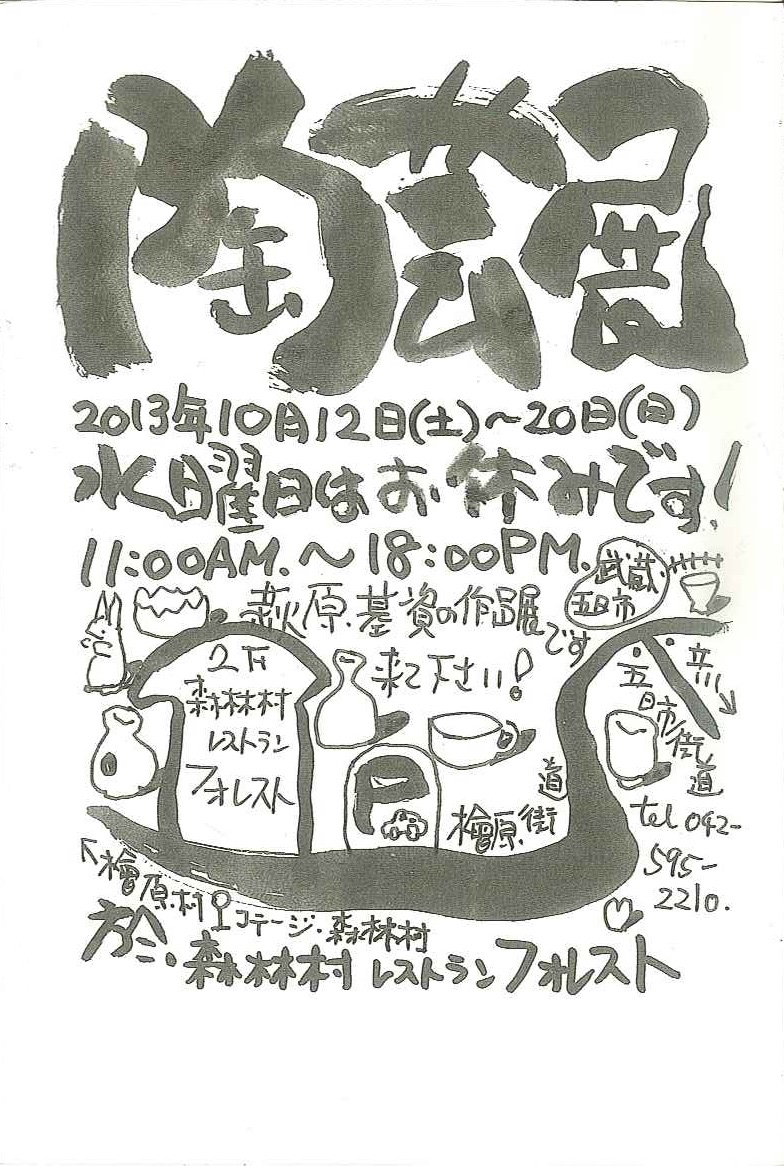 陶芸展
2013年10月12日(土)～20日(日)
水曜日はお休みです！
11:00AM.～18:00PM.
武蔵
五日市
萩原基資の作品展
です
来て下さい！
2F
森林村
レストラン
フォレスト
P
檜原街道
五日市街道
立川
tel 042-
595-
2210.
檜原村
コテージ・森林村
於・森林村 レストランフォレスト